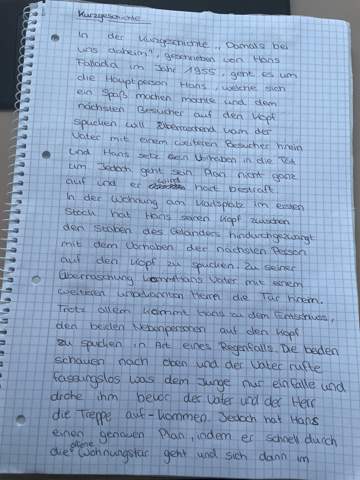 Kurzgeschichte
In der Kurzgeschichte „Damals bei
uns daheim", geschrieben von Hans
Fallada im Jahr 1955, geht es um
die Hauptperson Hans, welche sich
ein Spaß machen möchte und dem
nächsten Besucher auf den Kopf
spucken will. Überraschend kam der
Vater mit einem weiteren Besucher hrein
und Hans setz sein Vorhaben in die Tat
um. Jedoch geht sein Plan nicht ganz
auf und er wird hart bestraft.
In der Wohnung am Karlsplatz im ersten
Stock hat Hans seinen Kopf zwischen
den Stäben des Geländers hindurchgezwängt
mit dem Vorhaben der nächsten Person
auf den Kopf zu spucken. Zu seiner
Überraschung kommt Hans Vater mit einem
weiteren unbekannten Herrn die Tür hinein.
Trotz allem kommt Hans zu dem Entschluss,
den beiden Nebenpersonen auf den Kopf
zu spucken in Art eines Regenfalls. Die beiden
schauen nach oben und der Vater rufte
fassungslos was dem Junge nur einfalle und
drohe ihm bevor der Vater und der Herr
die Treppe auf-kommen. Jedoch hat Hans
einen genauen Plan, indem er schnell durch
die offene Wohnungstür geht und sich dann im